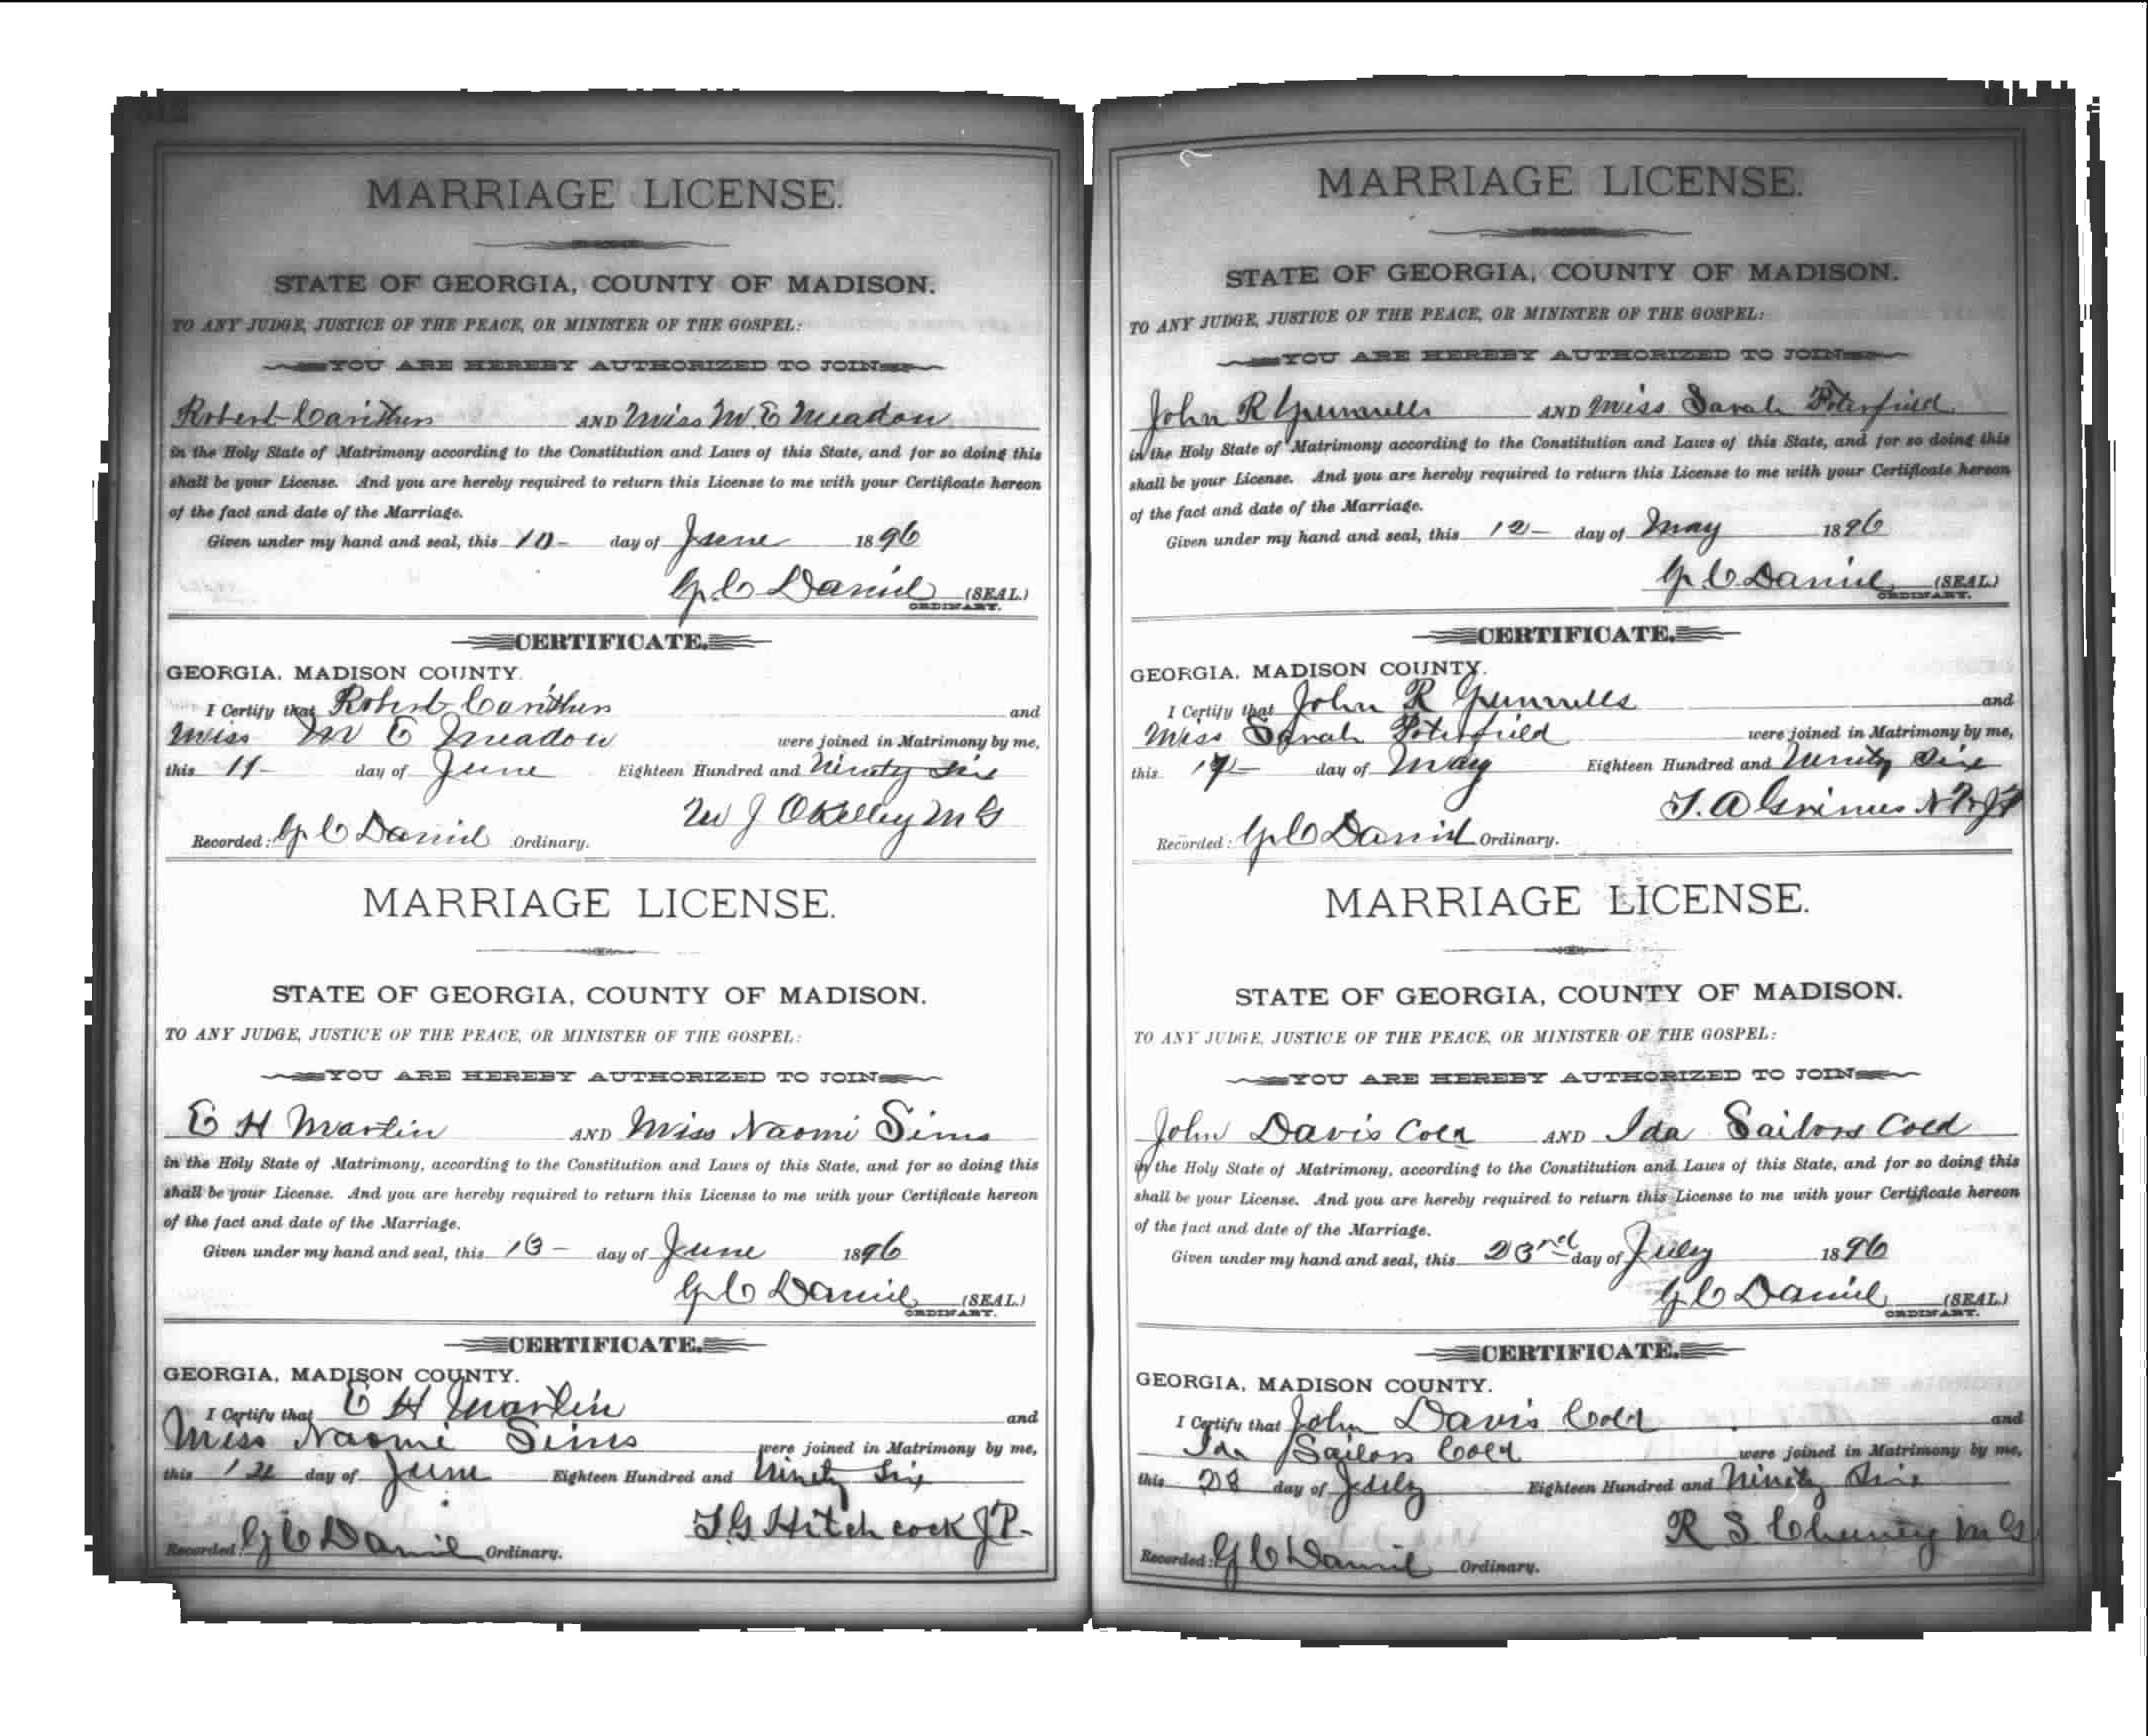 MARRIAGE LICENSE.
STATE OF GEORGIA, COUNTY OF MADISON.
TO ANY JUDGE, JUSTICE OF THE PEACE, OR MINISTER OF THE GOSPEL:
YOU ARE HEREBY AUTHORIZED TO JOIN
Robert Carithers AND Miss M. E Meadow
in the Holy State of Matrimony according to the Constitution and Laws of this State, and for so doing this
shall be your License. And you are hereby required to return this License to me with your Certificate hereon
of the fact and date of the Marriage.
Given under my hand and seal, this 10- day of June 1896
G. C Daniel (SEAL.)
ORDINARY.
CERTIFICATE.
GEORGIA, MADISON COUNTY.
I Certify that Robert Carithers and
Miss M E Meadow were joined in Matrimony by me,
this 11- day of June Eighteen Hundred and Ninety Six
W J OKelley M G
Recorded: G C Daniel Ordinary.
MARRIAGE LICENSE.
STATE OF GEORGIA, COUNTY OF MADISON.
TO ANY JUDGE, JUSTICE OF THE PEACE, OR MINISTER OF THE GOSPEL:
YOU ARE HEREBY AUTHORIZED TO JOIN
E H Martin AND Miss Naomi Sims
in the Holy State of Matrimony, according to the Constitution and Laws of this State, and for so doing this
shall be your License. And you are hereby required to return this License to me with your Certificate hereon
of the fact and date of the Marriage.
Given under my hand and seal, this 13- day of June 1896
G C Daniel (SEAL.)
ORDINARY.
CERTIFICATE.
GEORGIA, MADISON COUNTY.
I Certify that E H Martin and
Miss Naomi Sims were joined in Matrimony by me,
this day of June Eighteen Hundred and Ninety Six
T. G. Hitchcock J P.
Recorded: G C Daniel Ordinary.
MARRIAGE LICENSE.
STATE OF GEORGIA, COUNTY OF MADISON.
TO ANY JUDGE, JUSTICE OF THE PEACE, OR MINISTER OF THE GOSPEL:
YOU ARE HEREBY AUTHORIZED TO JOIN
John R Gunnells AND Miss Sarah Poterfield
in the Holy State of Matrimony according to the Constitution and Laws of this State, and for so doing this
shall be your License. And you are hereby required to return this License to me with your Certificate hereon
of the fact and date of the Marriage.
Given under my hand and seal, this 12- day of May 1896
G. C Daniel (SEAL.)
ORDINARY.
CERTIFICATE.
GEORGIA, MADISON COUNTY.
I Certify that John R Gunnells and
Miss Sarah Poterfield were joined in Matrimony by me,
this day of May Eighteen Hundred and Ninety Six
T. A Grimes
Recorded: G C Daniel Ordinary.
MARRIAGE LICENSE.
STATE OF GEORGIA, COUNTY OF MADISON.
TO ANY JUDGE, JUSTICE OF THE PEACE, OR MINISTER OF THE GOSPEL:
YOU ARE HEREBY AUTHORIZED TO JOIN
John Davis Cold AND Ida Sailors Cold
in the Holy State of Matrimony, according to the Constitution and Laws of this State, and for so doing this
shall be your License. And you are hereby required to return this License to me with your Certificate hereon
of the fact and date of the Marriage.
Given under my hand and seal, this 23rd day of July 1896
G C Daniel (SEAL.)
ORDINARY.
CERTIFICATE.
GEORGIA, MADISON COUNTY.
I Certify that John Davis Cold and
Ida Sailors Cold were joined in Matrimony by me,
this 28 day of July Eighteen Hundred and Ninety Six
R S. Cheney M G
Recorded: G C Daniel Ordinary.